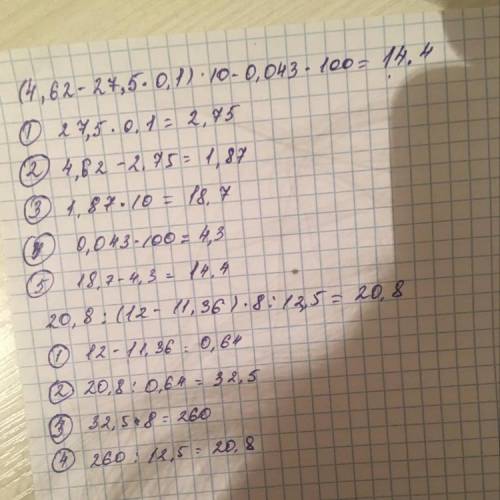 (4,62 - 27,5 · 0,1) · 10 - 0,043 · 100 = 14.4
① 27,5 · 0,1 = 2,75
② 4,62 - 2.75 = 1,87
③ 1,87 · 10 = 18.7
④ 0,043 · 100 = 4,3
⑤ 18,7 - 4,3 = 14.4
20,8 : (12 - 11,36) · 8 : 12,5 = 20,8
① 12 - 11,36 = 0,64
② 20,8 : 0,64 = 32,5
③ 32,5 · 8 = 260
④ 260 : 12,5 = 20,8